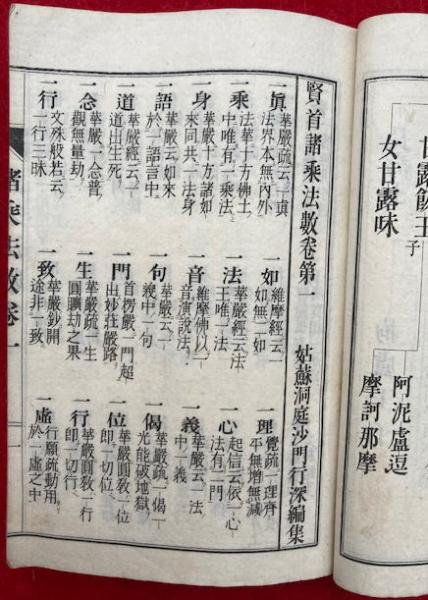 甘露飯王
子
女甘露味
阿泥盧逗
摩訶那摩
賢首諸乘法數卷第一
姑蘇洞庭沙門行深編集
一眞 華嚴疏云一眞法界本無內外 一如 維摩經云一如無二如 一理 覺疏一理齊平無增無減
一乘 法華十方佛土中唯有一乘法 一法 華嚴經云法王唯一法 一心 起信云依一心法有二門
一身 華嚴十方諸如來同共一法身 一音 維摩佛以一音演說法 一義 華嚴云一法中一義
一語 華嚴云如來於一語言中 一句 華嚴云一義中一句 一偈 華嚴疏一偈光能破地獄
一道 華嚴經云一道出生死 一門 首楞嚴一門超出妙莊嚴路 一位 華嚴圓敎一位即一切位
一念 華嚴一念普觀無量劫 一生 華嚴疏一生圓曠劫之果 一行 華嚴圓敎一行即一切行
一行 文殊般若云一行三昧 一致 華嚴鈔開途非一致 一虛 行願疏動用於一虛之中
諸乘法數卷一